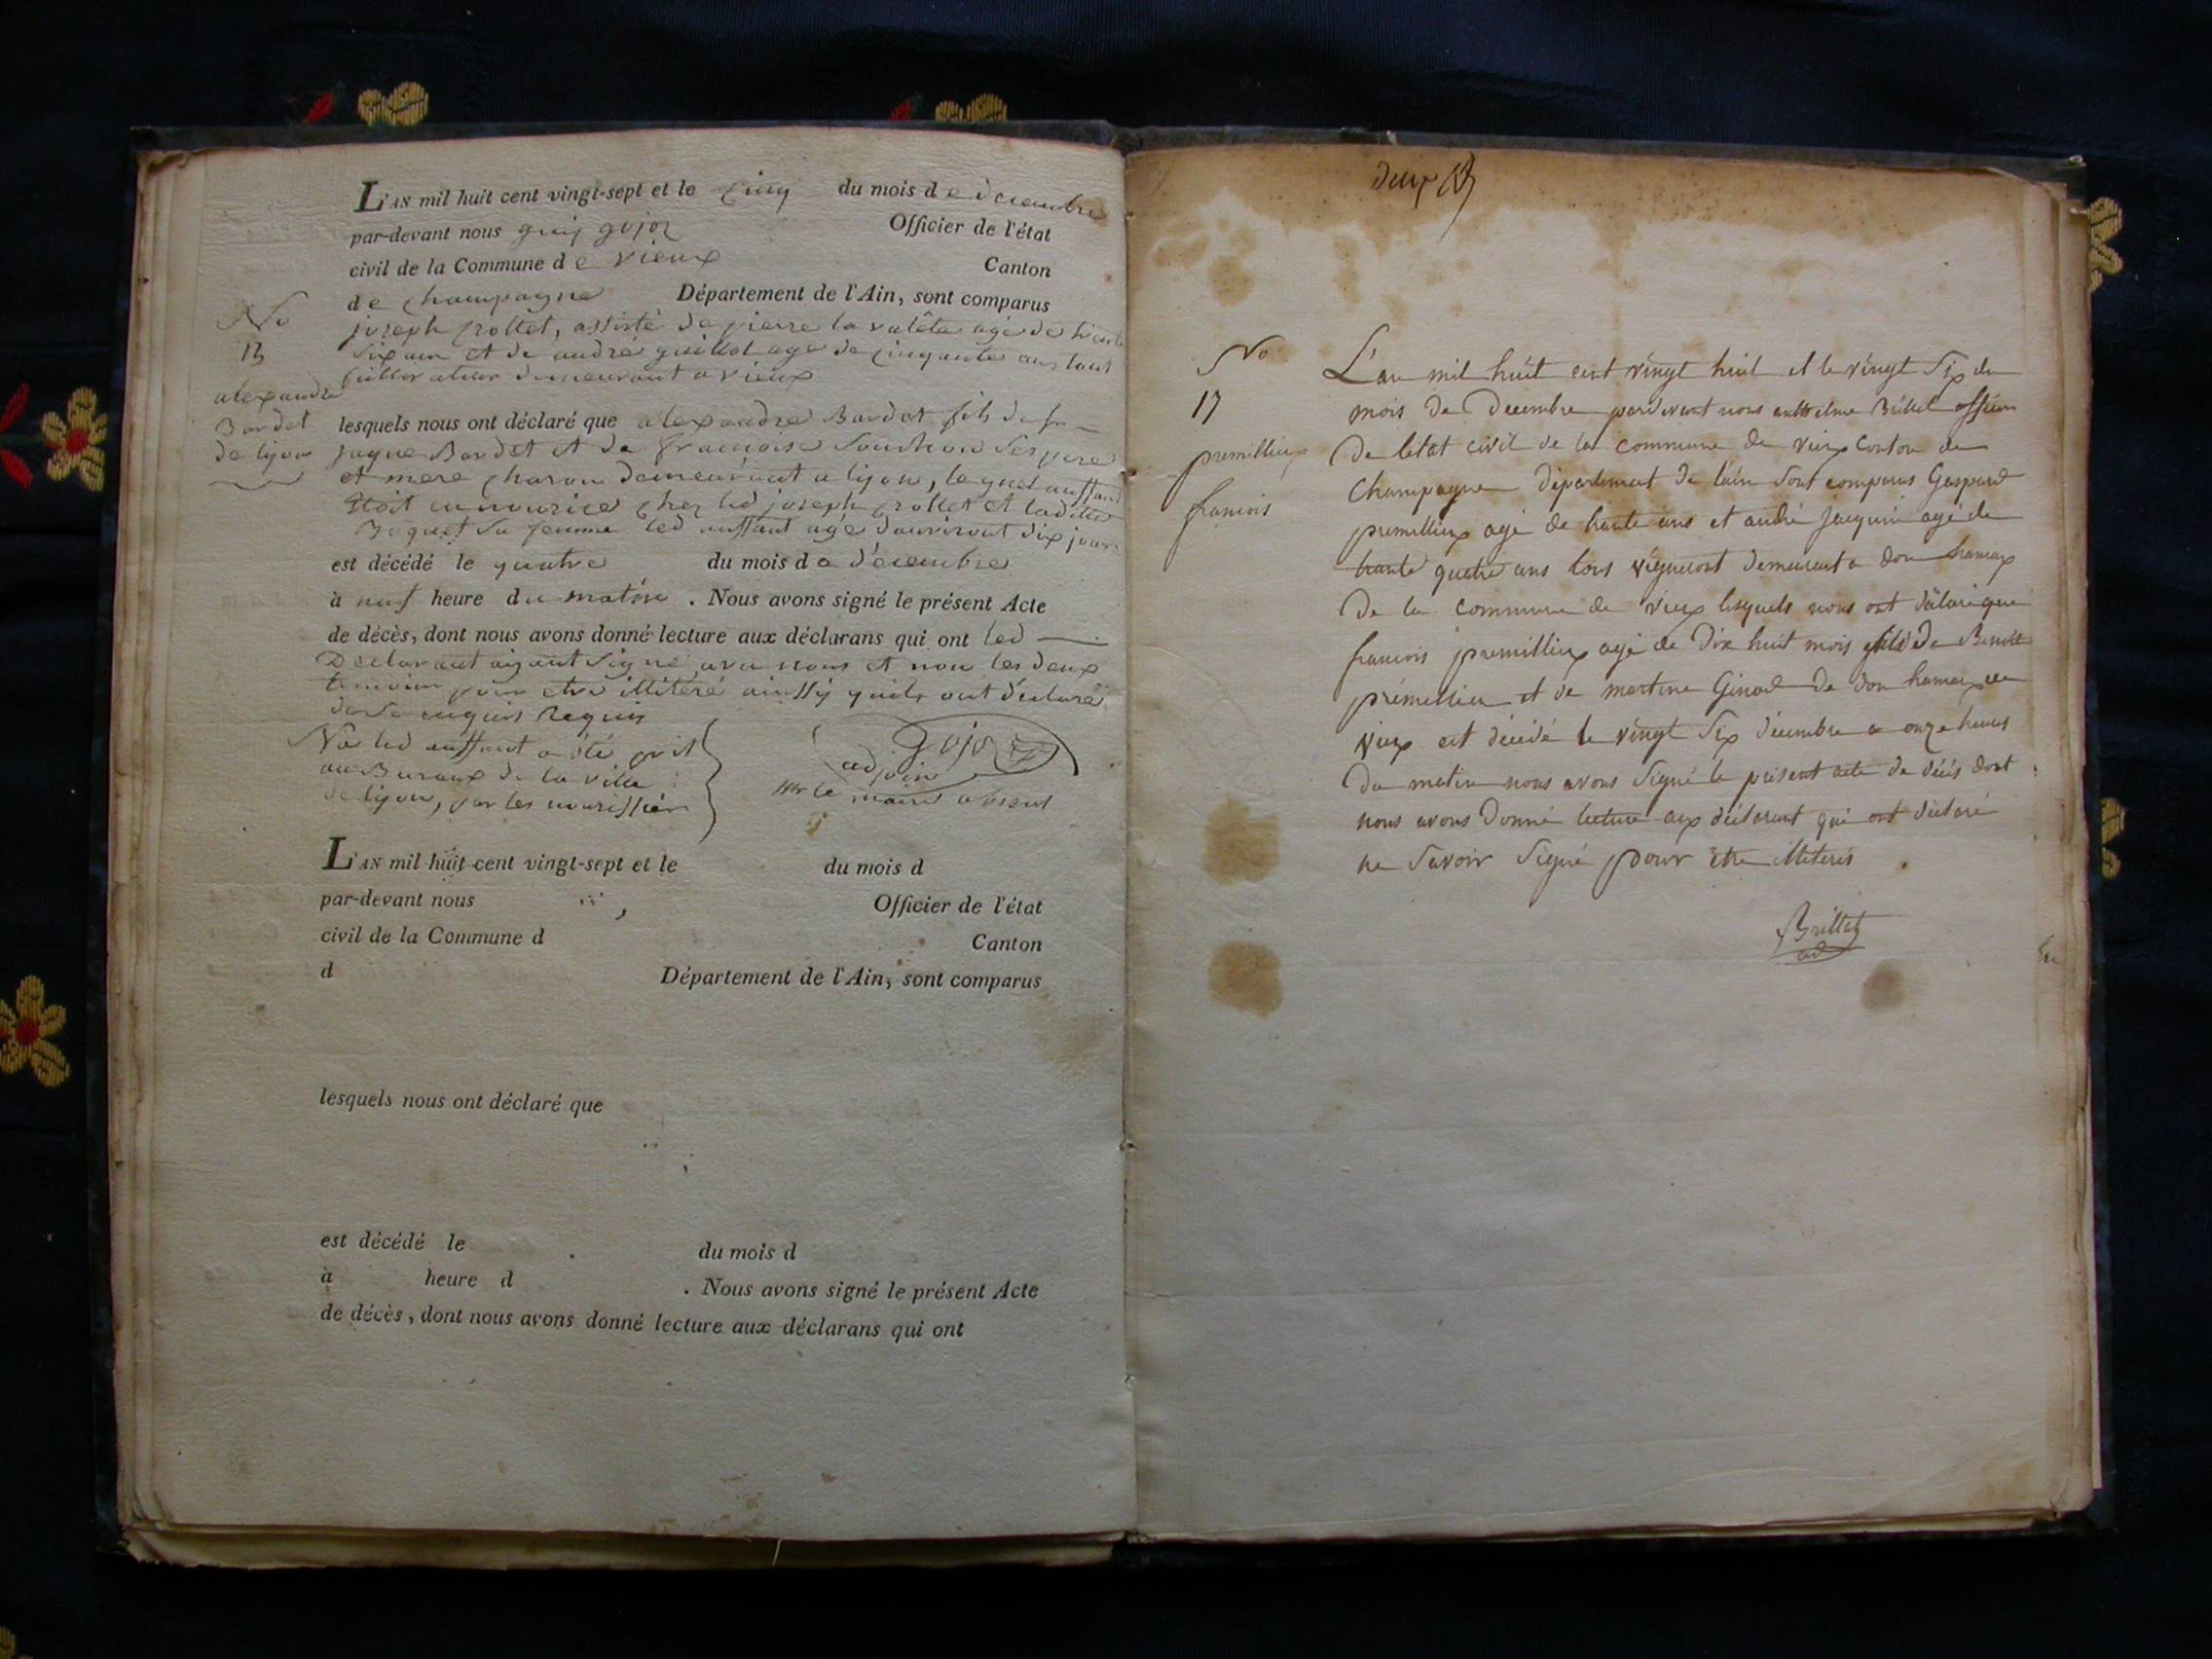 L'AN mil huit cent vingt-sept et le cinq du mois de décembre
par-devant nous guij gojoz Officier de l'état
civil de la Commune de vieux Canton
de champagne Département de l'Ain, sont comparus
No
13
alexandre
Bardet
de lyon
joseph rollet, assisté de pierre la valête agé de trente
six ans et de andré guillot age de cinquante ans tout
cultivateur demeurant a vieux
lesquels nous ont déclaré que alexandre Bardet fils de
jaque Bardet et de francoise Souchon Ses pere
et mere charon demeurant a lyon, lequel anffant
étoit en nourice chez led joseph rollet et laditte
Boquet Sa femme led anffant agé danviront dix jours
est décédé le quatre du mois de décembre
à neuf heure du matin . Nous avons signé le présent Acte
de décès, dont nous avons donné lecture aux déclarans qui ont led
Déclarant aiyant Signé avec nous et non les deux
temoin pour etre illitéré ainssy quils ont déclaré
de ce enquis Requis
Vû led anffant a été prit
au Buraux de la ville
de lyon, par les nourissier
gojoz
adjoin
Mr le maire absent
L'AN mil huit cent vingt-sept et le du mois d
par-devant nous Officier de l'état
civil de la Commune d Canton
d Département de l'Ain, sont comparus
lesquels nous ont déclaré que
est décédé le du mois d
à heure d . Nous avons signé le présent Acte
de décès, dont nous avons donné lecture aux déclarans qui ont
No
17
premillieux
francois
L'an mil huit cent vingt huit et le vingt Six du
mois de Decembre pardevant nous anthelme Brillat officier
De letat civil de la commune de vieux Canton de
Champagne Département De lain Sont comparus Gaspard
premillieux agé de trante ans et andré jacquin agé de
trante quatre ans tous vigneront demeurant a don hameax
De la commune de vieux lesquels nous ont déclaré que
francois premillieux agé de Dix huit mois fils De Benoit
prémillieu et de martine Ginod De don hameax de
vieux est décédé le vingt Six décembre a onze heures
Du matin nous avons Signé le présent acte de décés dont
nous avons Donné lecture aux déclarant qui ont déclaré
ne Savoir Signé pour être illiterés
Brillat
ad